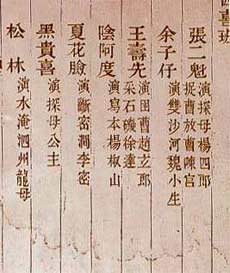 喜班
張二魁 演探母楊四郎
捉曹放曹陳宮
余子仔 演雙沙河魏小生
王壽先 演困曹趙玄郎
采石磯徐達
陰阿度 演寫本楊椒山
夏花臉 演斷密澗李密
黑貴喜 演探母公主
松林 演水淹泗州龍母